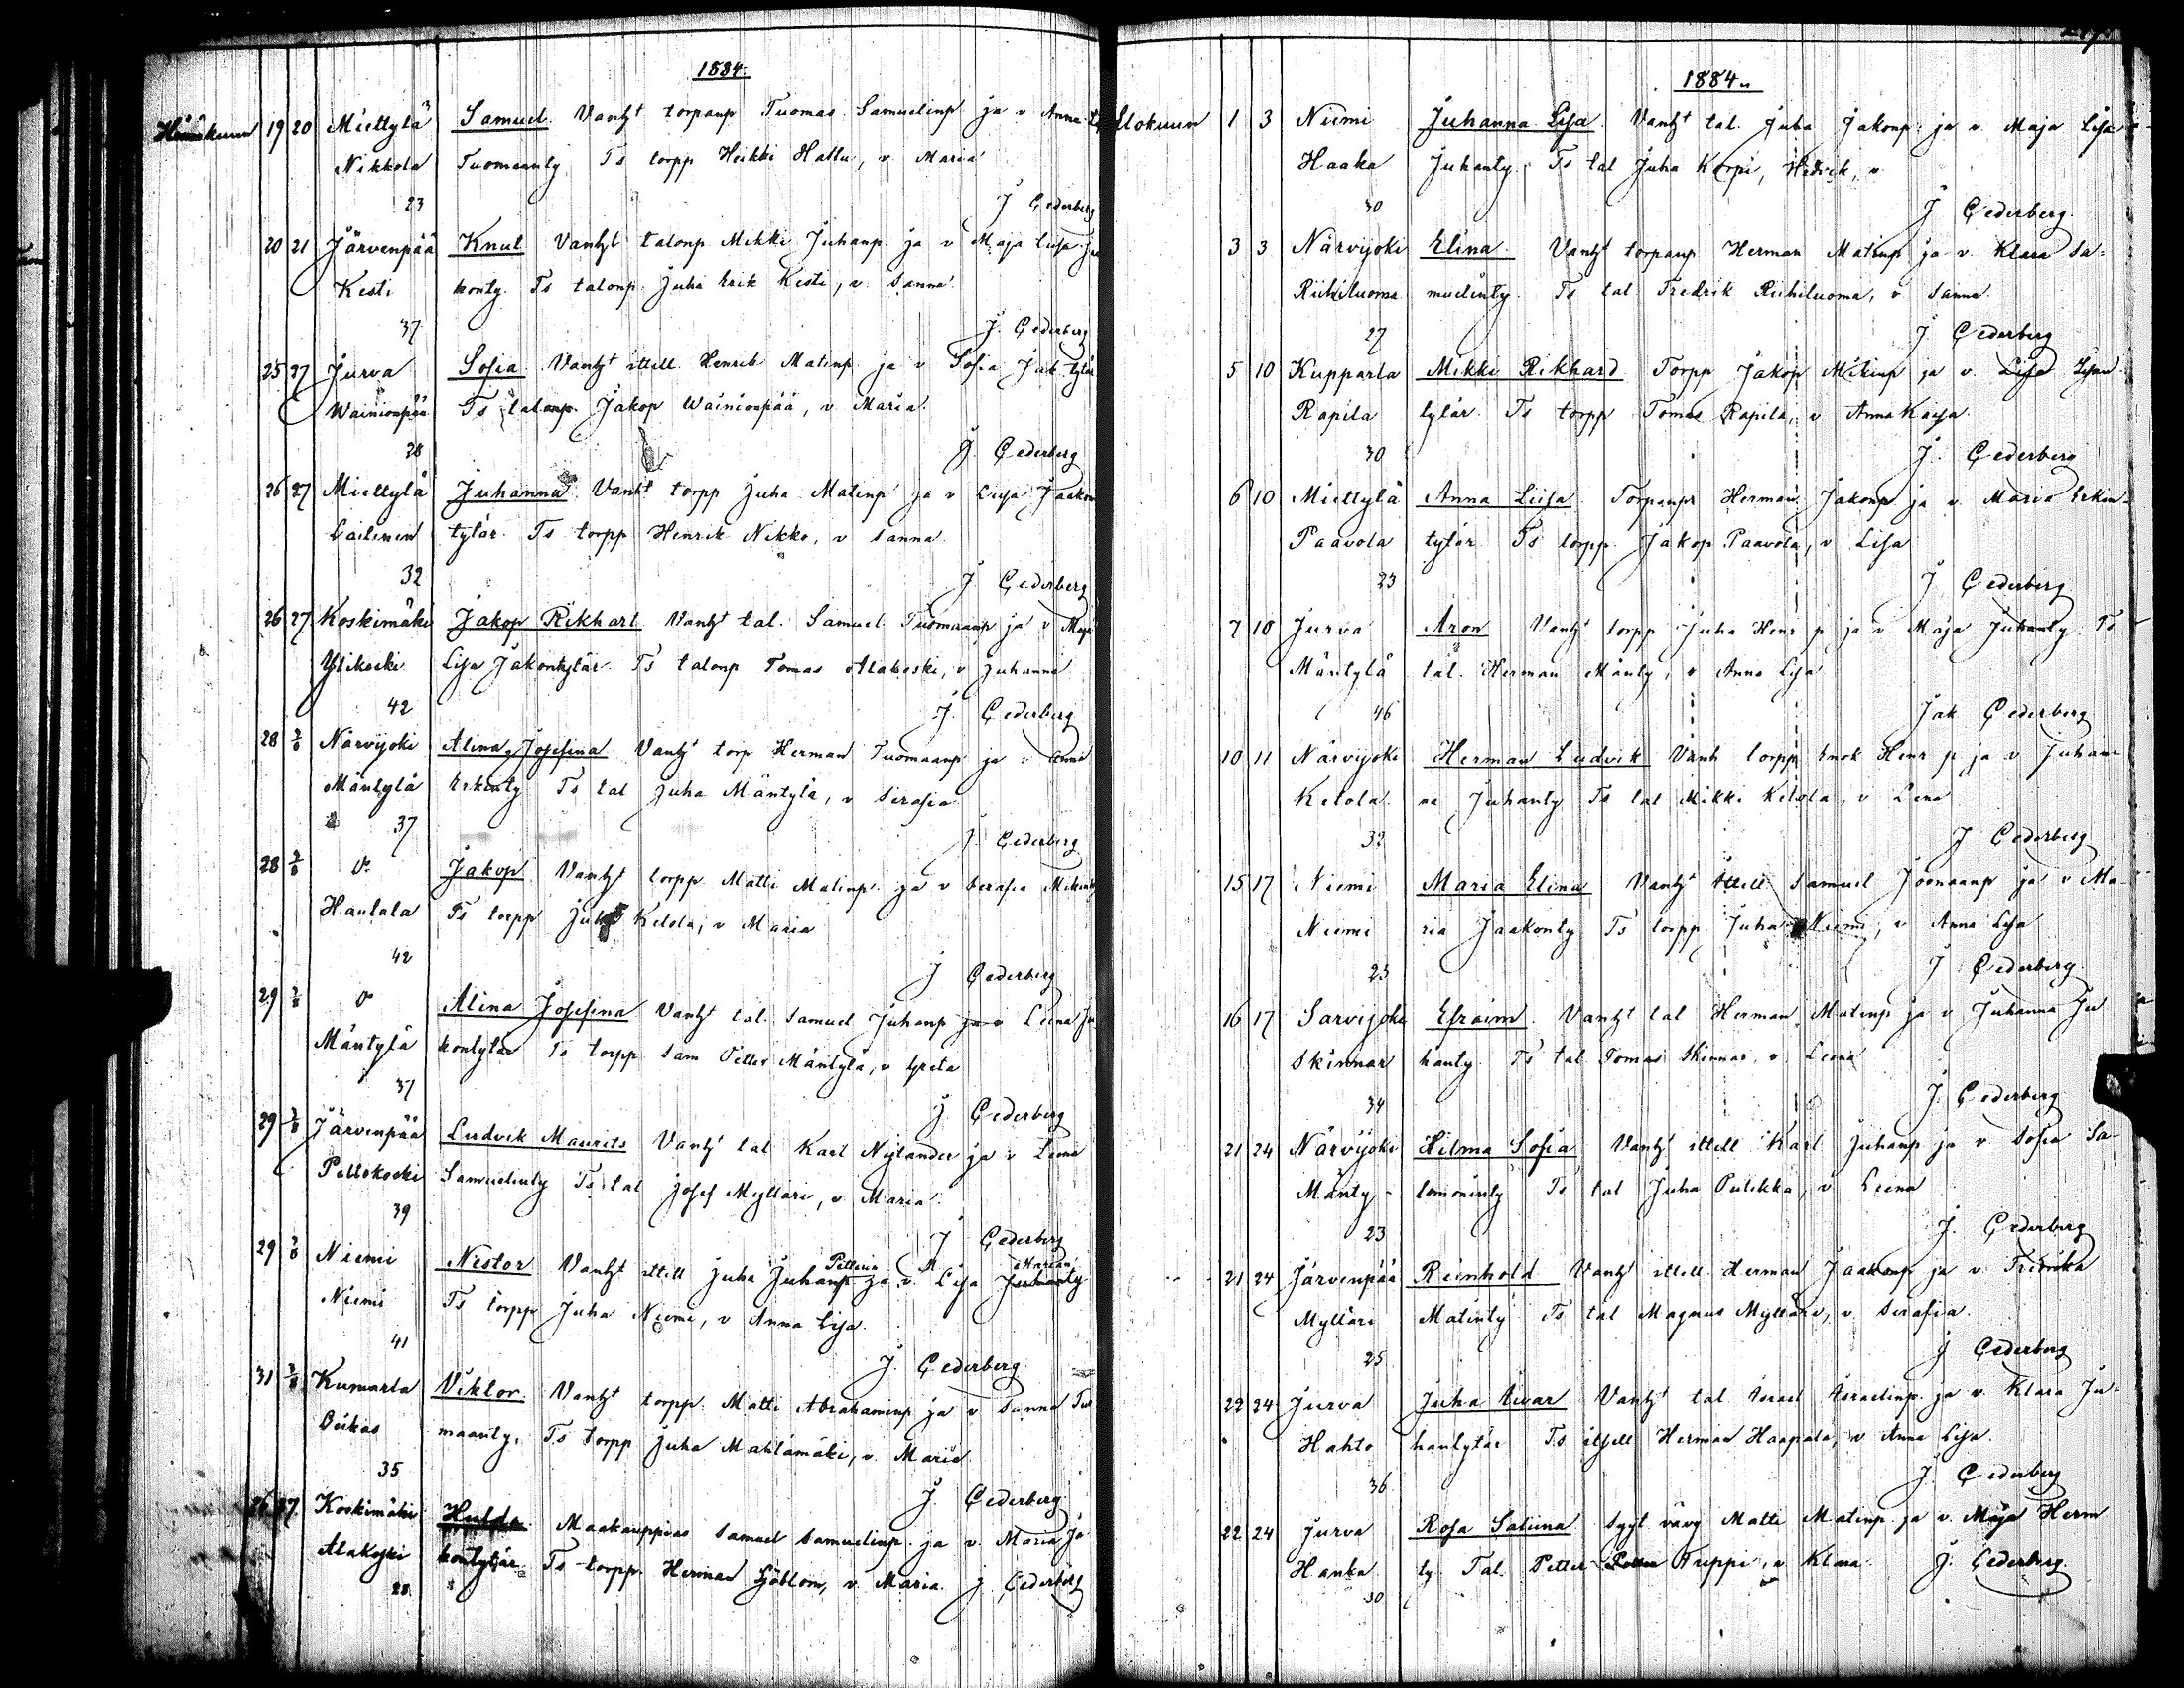 1884.
Heinäkuun 19 20 Miettylä Samuel. Vanht torpanp Tuomas Samuelinp ja v Anna
Nikkola Tuomaanty. Ts torpp Heikki Hallu, v. Maria
23 J Cederberg
20 21 Järvenpää Knut Vanht talonp Mikki Juhanp ja v Maja Lisa Ja
Kesti konty. Ts talonp. Juha Erik Kesti, v. Sanna.
37 J. Cederberg
25 27 Jurva Sofia Vanht ittell Henrik Matinp ja v Sofia Jak tytär
Wainionpää Ts talonp. Jakop Wainionpää, v. Maria.
28 J. Cederberg
26 27 Miettylä Juhanna Vanht torpp Juha Matinp ja v Liisa Jaakon
Lailinen tytär. Ts torpp Henrik Nikko, v Sanna
32 J Cederberg
26 27 Koskimäki Jakop Rikhart Vanht tal. Samuel Tuomaanp ja v Maja
Ylikoski Lisa Jakontytär. Ts talonp Tomas Alakoski, v Juhanna
42 J. Cederberg
28 2/8 Närvijoki Alina Josefina Vanht torp Herman Tuomaanp ja v Anna
Mäntylä Erkinty Ts tal Juha Mäntylä, v Serafia
37 J Cederberg
28 2/8 Jakop Vanht torpp Matti Matinp ja v Serafia Mikinty
Hautala Ts torpp Juha Ketola, v Maria
42 J Cederberg
29 2/8 Alina Josefina Vanht tal. Samuel Juhanp ja v Leena Ja
Mäntylä kontytär Ts torpp Sam Petter Mäntylä, v Greta
37 J Cederberg
29 2/8 Järvenpää Ludvik Maurits Vanht tal Karl Nylander ja v Leena
Peltokoski Samuelinty Ts tal Josef Mylläri, v Maria.
39 J Cederberg
Petterin Marian
29 2/8 Niemi Nestor Vanht ittell Juha Juhanp ja v. Lisa Juhanty
Niemi Ts torpp Juha Niemi, v Anna Lisa.
41 J. Cederberg
31 2/8 Kumarla Viktor. Vanht torpp. Matti Abrahaminp ja v Sanna Tuo
maanty. Ts torpp Juha Mahlamäki, v. Maria
35 J. Cederberg
26 27 Koskimäki Hulda Maakauppias Samuel Samuelinp. ja v. Maria Ja
Alakoski kontytär Ts torpp. Herman Sjöblom, v. Maria. J Cederberg
28
1884.
Elokuun 1 3 Niemi Juhanna Lisa. Vanht tal. Juha Jakonp. ja v. Maja Lisa
Haaka Juhanty. Ts tal Juha Korpi, Hedvik, v
30 J Cederberg.
3 3 Närvijoki Elina Vanht torpanp Herman Matinp ja v. Klara Sa-
Riihiluoma muelinty. Ts tal Fredrik Riihiluoma, v Sanna.
27 J Cederberg
5 10 Kupparla Mikki Rikhard Torpp Jakop Mikinp ja v. Lisa
Rapila tytär. Ts torpp Tomas Rapila, v Anna Kaisa.
30 J. Cederberg
6 10 Miettylä Anna Liisa Torpanp Herman Jakonp ja v. Maria Erkin-
Paavola tytär. Ts torpp. Jakop Paavola, v Lisa
23 J Cederberg
7 10 Jurva Aron Vanht torpp Juha Henr p ja v Maja Juhanty. Ts
Mäntylä tal. Herman Mänty, v Anna Lisa
46 Jak Cederberg
10 11 Närvijoki Herman Ludvik Vanh torpp Enok Henr p ja v Juhan-
Ketola na Juhanty Ts tal Mikki Ketola, v Lena
32 J Cederberg
15 17 Niemi Maria Elina Vanht ittell Samuel Joonaanp ja v Ma-
Niemi ria Jaakonty Ts torpp. Juha Niemi, v Anna Lisa
23 J Cederberg
16 17 Sarvijoki Efraim. Vanht tal Herman Matinp ja v Juhanna Ju
Skinnar hanty Ts tal Tomas Skinnar, v. Leena
34 J. Cederberg
21 24 Närvijoki Hilma Sofia Vanht ittell Karl Juhanp ja v Sofia Sa-
Mänty- lomoninty Ts tal Juha Pulikka, v Leena
23 J. Cederberg
21 24 Järvenpää Reinhold Vanht ittell Herman Jaakonp ja v. Fredrika
Mylläri Matinty Ts tal Magnus Mylläri, v. Serafia.
25 J Cederberg
22 24 Jurva Juha Iivar Vanht tal Israel Israelinp. ja v. Klara Ju-
Hahto hantytär Ts ittell Herman Haapala, v Anna Lisa.
36 J Cederberg
22 24 Jurva Rosa Salima Matti Matinp. ja v. Maja Herm
Hanka ty. Tal. Petter Truppi, v Klara J. Cederberg.
30